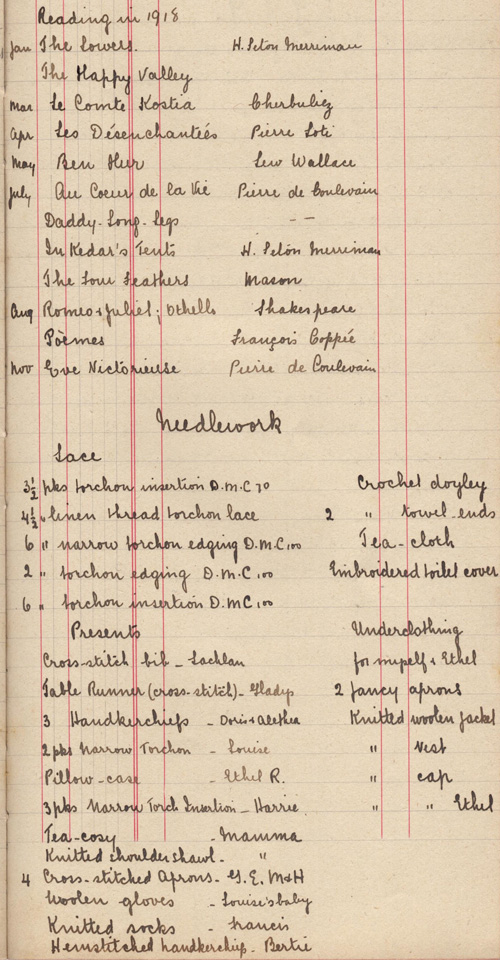 Reading in 1918
Jan The Sowers. H. Seton Merriman
The Happy Valley
Mar Le Comte Kostia Cherbuliez
Apr Les Désenchantées Pierre Loti
May Ben Hur Lew Wallace
July Au Coeur de la Vie Pierre de Coulevain
Daddy-Long-Legs – –
In Kedar's Tents H. Seton Merriman
The Four Feathers Mason
Aug Romeo & Juliet; Othello Shakespeare
Poèmes François Coppée
Nov Eve Victorieuse Pierre de Coulevain
Needlework
Lace
3½ pks torchon insertion D.M.C 70
4½ " linen thread torchon lace
6 " narrow torchon edging D.M.C 100
2 " torchon edging D.M.C 100
6 " torchon insertion D.M.C 100
Crochet doyley
2 " towel-ends
Tea-cloth
Embroidered toilet cover
Presents
Cross-stitch bib – Lachlan
Table Runner (cross-stitch) – Gladys
3 Handkerchiefs – Doris & Alethea
2 pks Narrow Torchon – Louise
Pillow-case – Ethel R.
3 pks Narrow Torch Insertion – Harrie
Tea-cosy – Mamma
Knitted shoulder shawl – "
4 Cross-stitched Aprons – G. E. M & H
Woolen gloves – Louise's baby
Knitted socks – Francis
Hemstitched handkerchip – Bertie
Underclothing
for myself & Ethel
2 fancy aprons
Knitted woolen jacket
" vest
" cap
" " Ethel